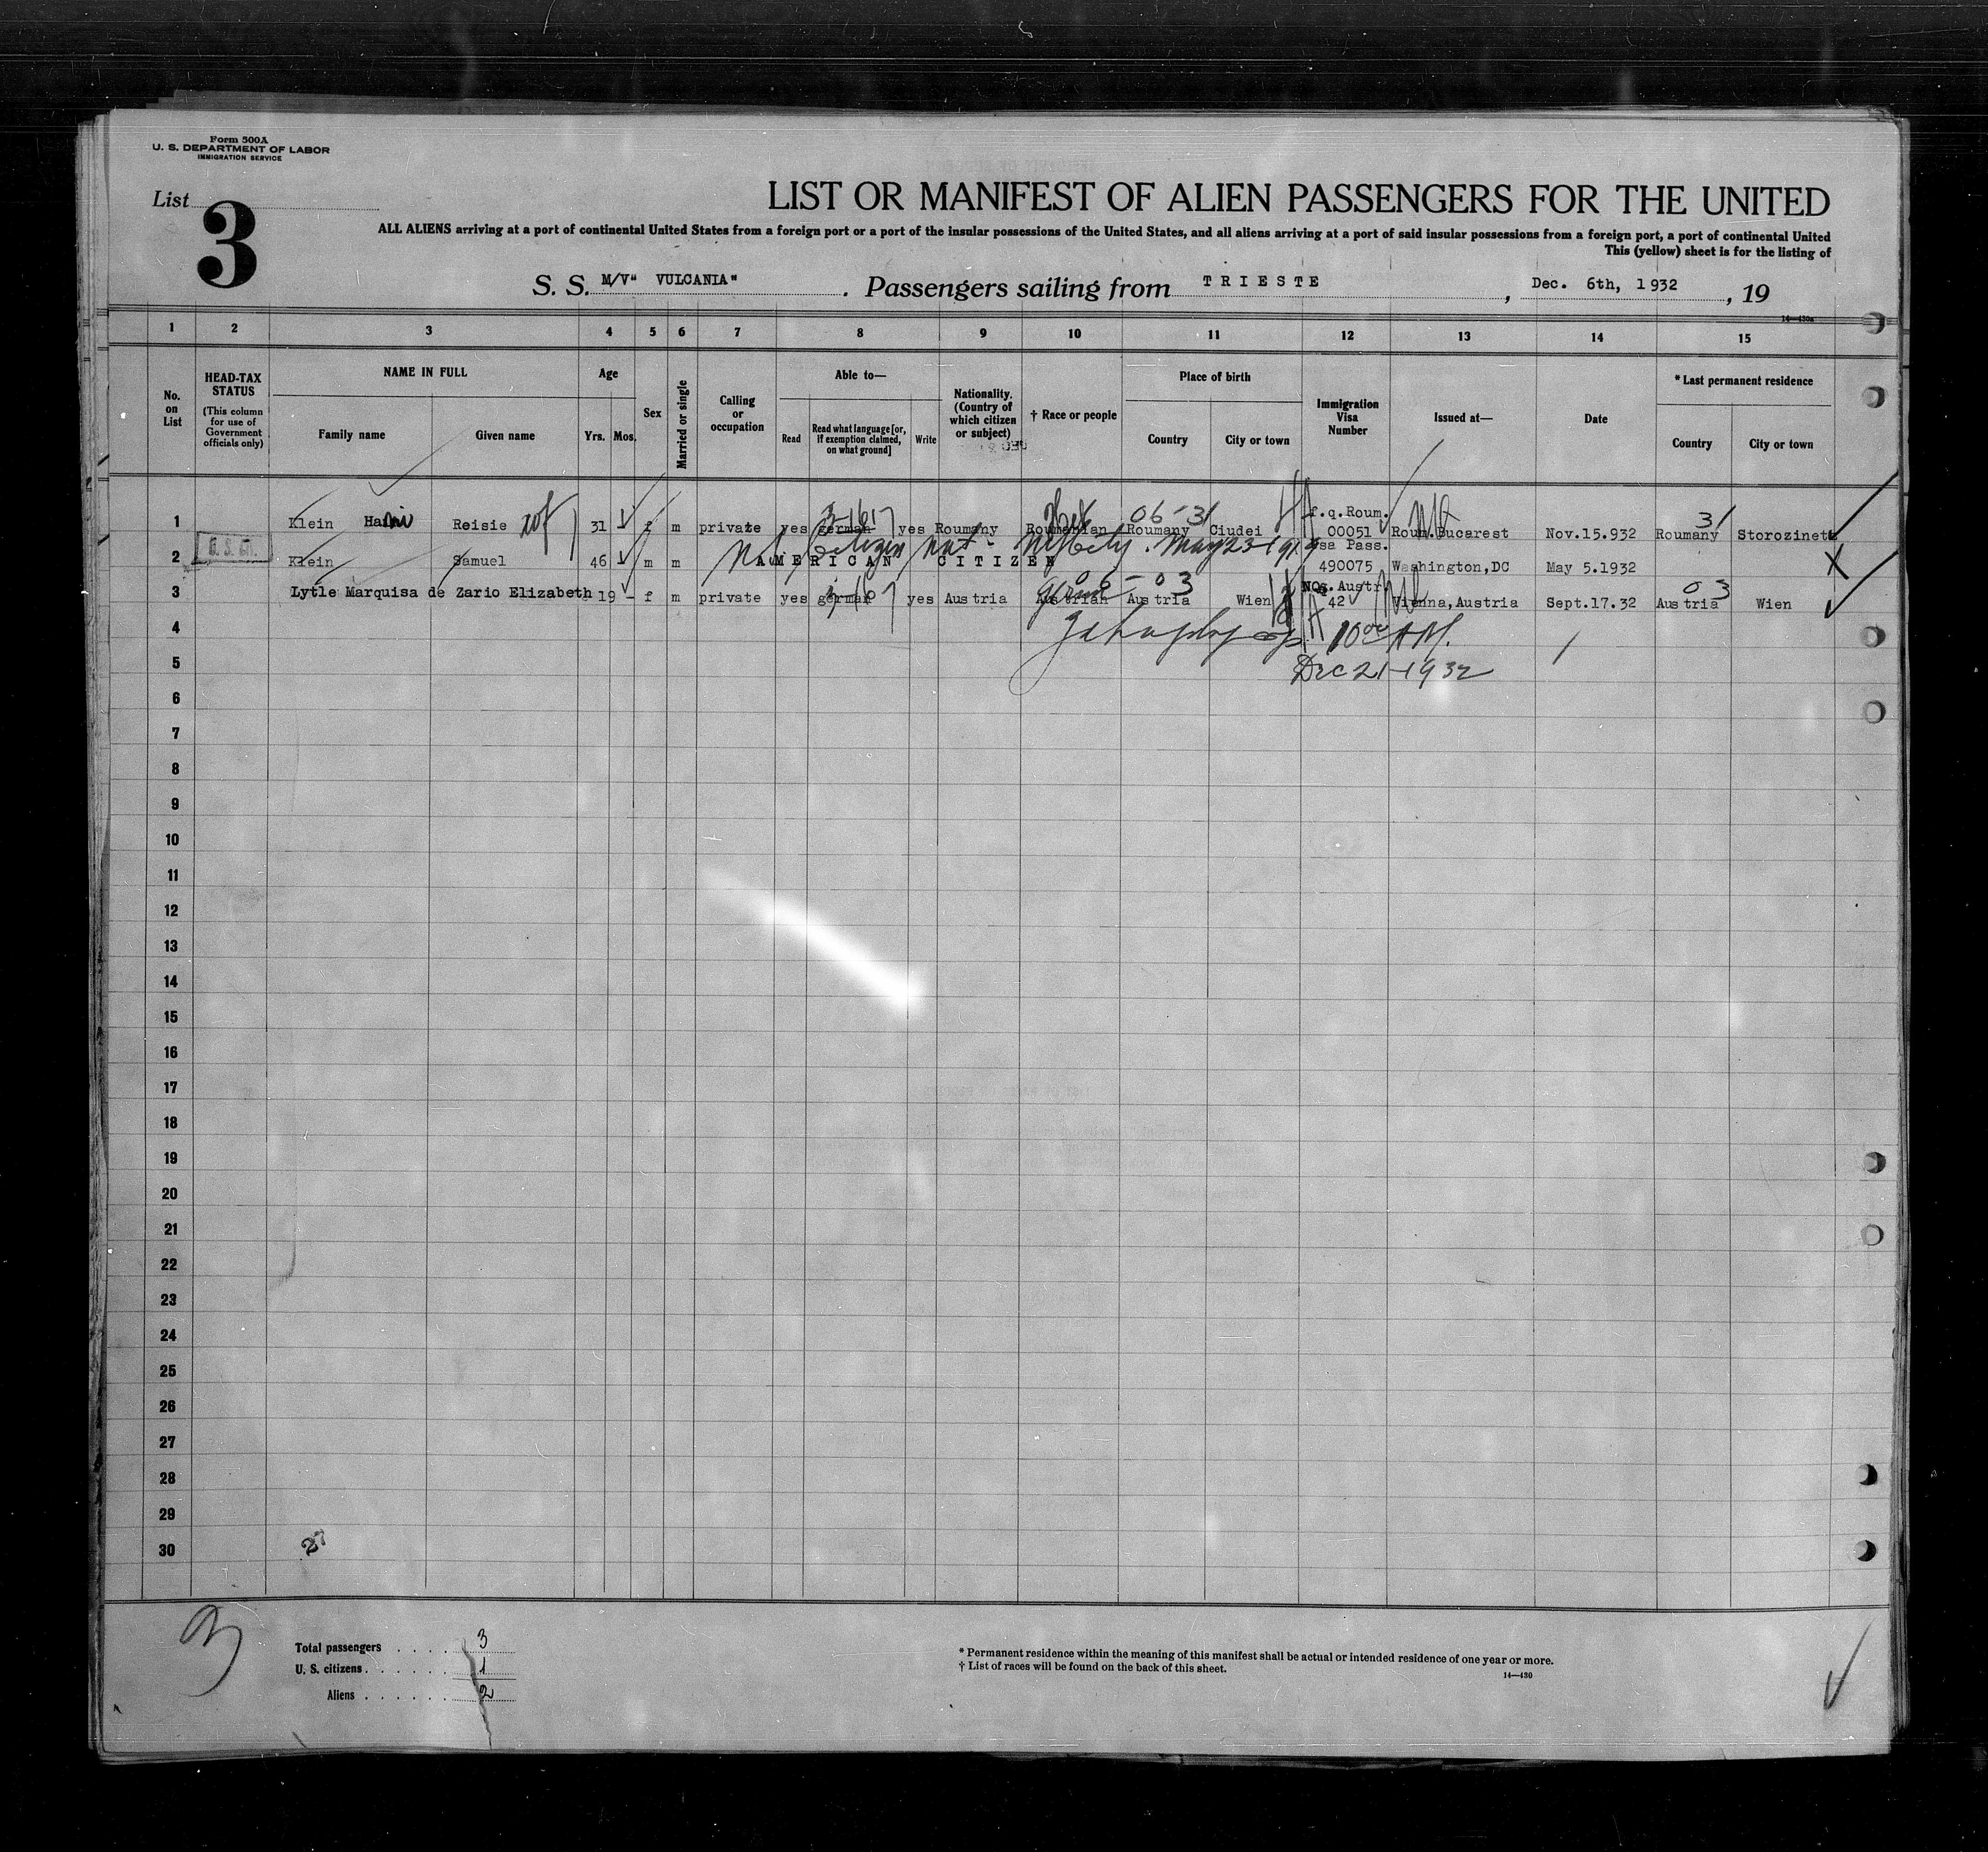 Form 500A
U. S. DEPARTMENT OF LABOR
IMMIGRATION SERVICE
List 3
LIST OR MANIFEST OF ALIEN PASSENGERS FOR THE UNITED
ALL ALIENS arriving at a port of continental United States from a foreign port or a port of the insular possessions of the United States, and all aliens arriving at a port of said insular possessions from a foreign port, a port of continental United
This (yellow) sheet is for the listing of
S. S. M/V" VULCANIA" . Passengers sailing from TRIESTE , Dec. 6th, 1932 , 19
14—430a
1 2 3 4 5 6 7 8 9 10 11 12 13 14 15
No. on List
HEAD-TAX STATUS (This column for use of Government officials only)
NAME IN FULL
Family name Given name
Age
Yrs. Mos.
Sex
Married or single
Calling or occupation
Able to—
Read Read what language [or, if exemption claimed, on what ground] Write
Nationality. (Country of which citizen or subject)
† Race or people
Place of birth
Country City or town
Immigration Visa Number
Issued at—
Date
* Last permanent residence
Country City or town
f.q.Roum.
1 Klein Reisie 31 f m private yes german yes Roumany Roumanian Roumany Ciudei 00051 Roum.Bucarest Nov.15.932 Roumany Storozinett
3-1617 06-31 31
Citizen May 23-1919
Pass.
2 Klein Samuel 46 m m AMERICAN CITIZEN 490075 Washington,DC May 5.1932
3 Lytle Marquisa de Zario Elizabeth 19 - f m private yes german yes Austria Austrian Austria Wien 42 Vienna,Austria Sept.17.32 Austria Wien
06-03 03
4 10 00 AM.
5 Dec 21-1932
6
7
8
9
10
11
12
13
14
15
16
17
18
19
20
21
22
23
24
25
26
27
28
29
30
27
Total passengers . . . . 3
U. S. citizens . . . . . . 1
Aliens . . . . . . 2
* Permanent residence within the meaning of this manifest shall be actual or intended residence of one year or more.
† List of races will be found on the back of this sheet.
14—430